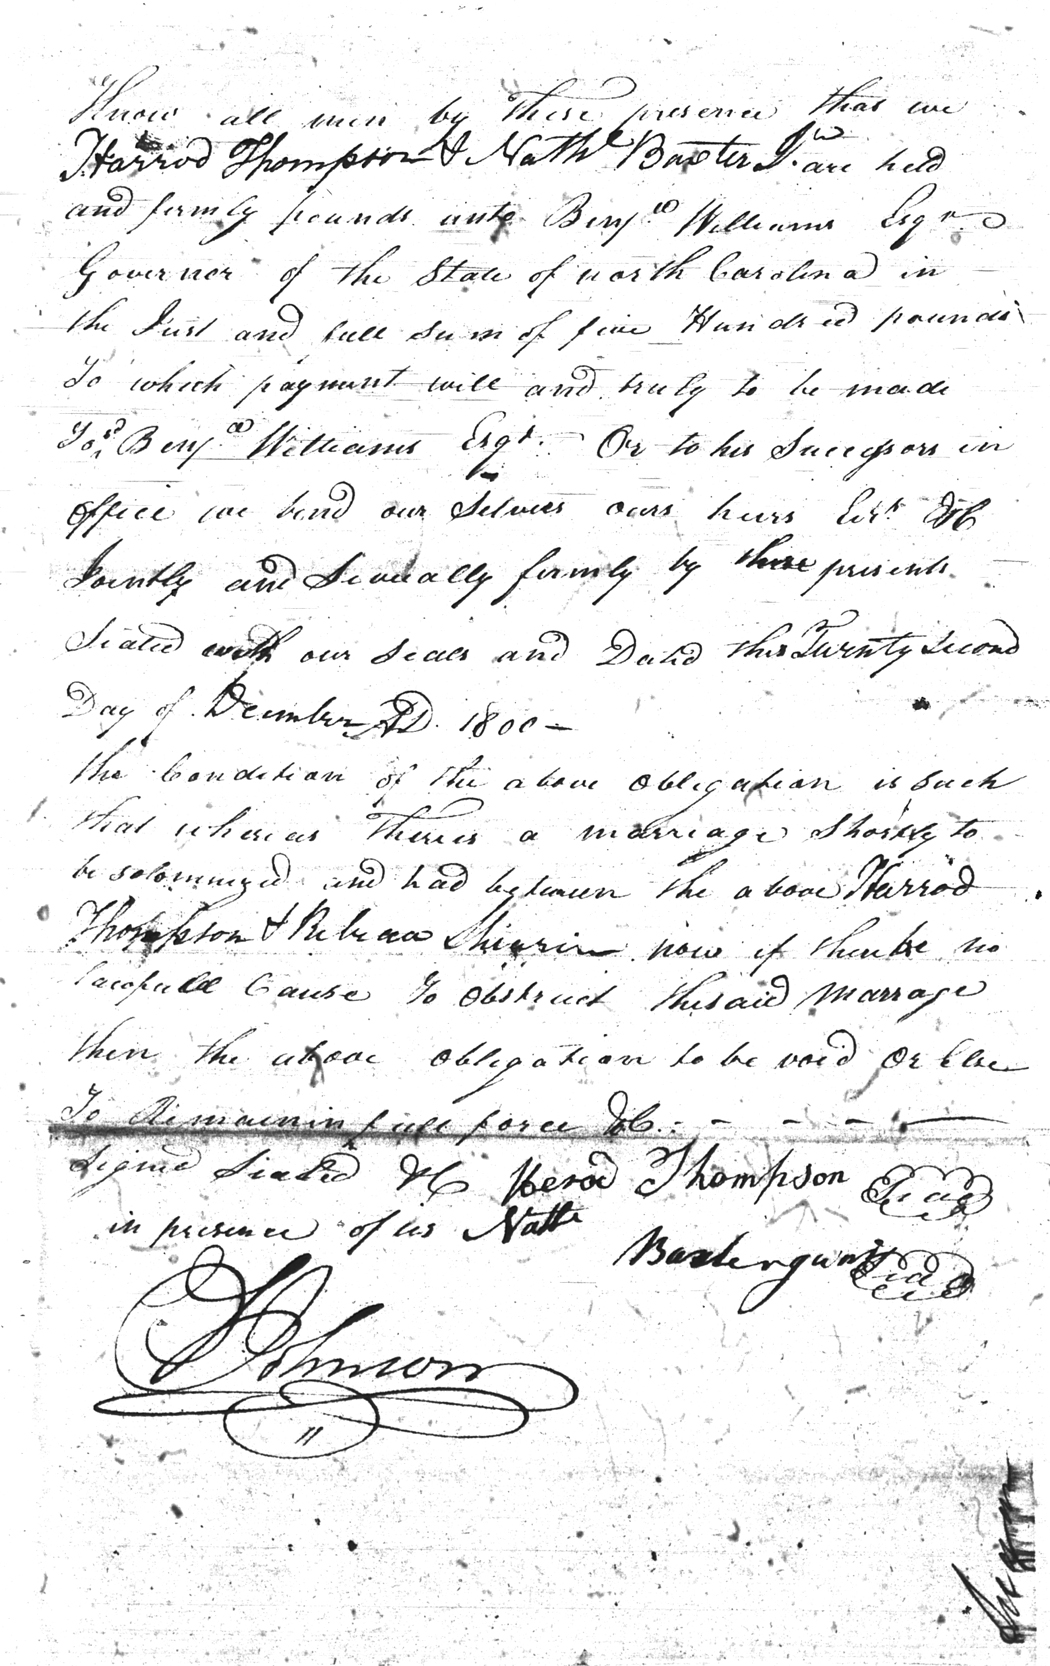 Know all men by these presence that we
Harrod Thompson & Nathl Baxter Jur are held
and firmly bounds unto Benjn Williams Esqr
Governor of the State of north Carolina in
the Just and full sum of five Hundred pounds
To which payment will and truly to be made
To sd Benjn Williams Esqr. Or to his Successors in
office we bind our Selves ours heirs Exrs &C
Jointly and Severally firmly by these presents
Sealed with our Seals and Dated this Twenty Second
Day of December AD. 1800 –
the Condition of the above obligation is such
that whereas theres a marriage Shortly to
be solomnized and had between the above Harrod
Thompson & Rebecca now if there be no
lawfull Cause To obstruct the said marrage
then the above obligation to be void Or Else
To Remain in full force &C. - - - —
Signed Sealed &C Herod Thompson Seal
in presence of us Nathl
Baxter junr Seal
Johnson